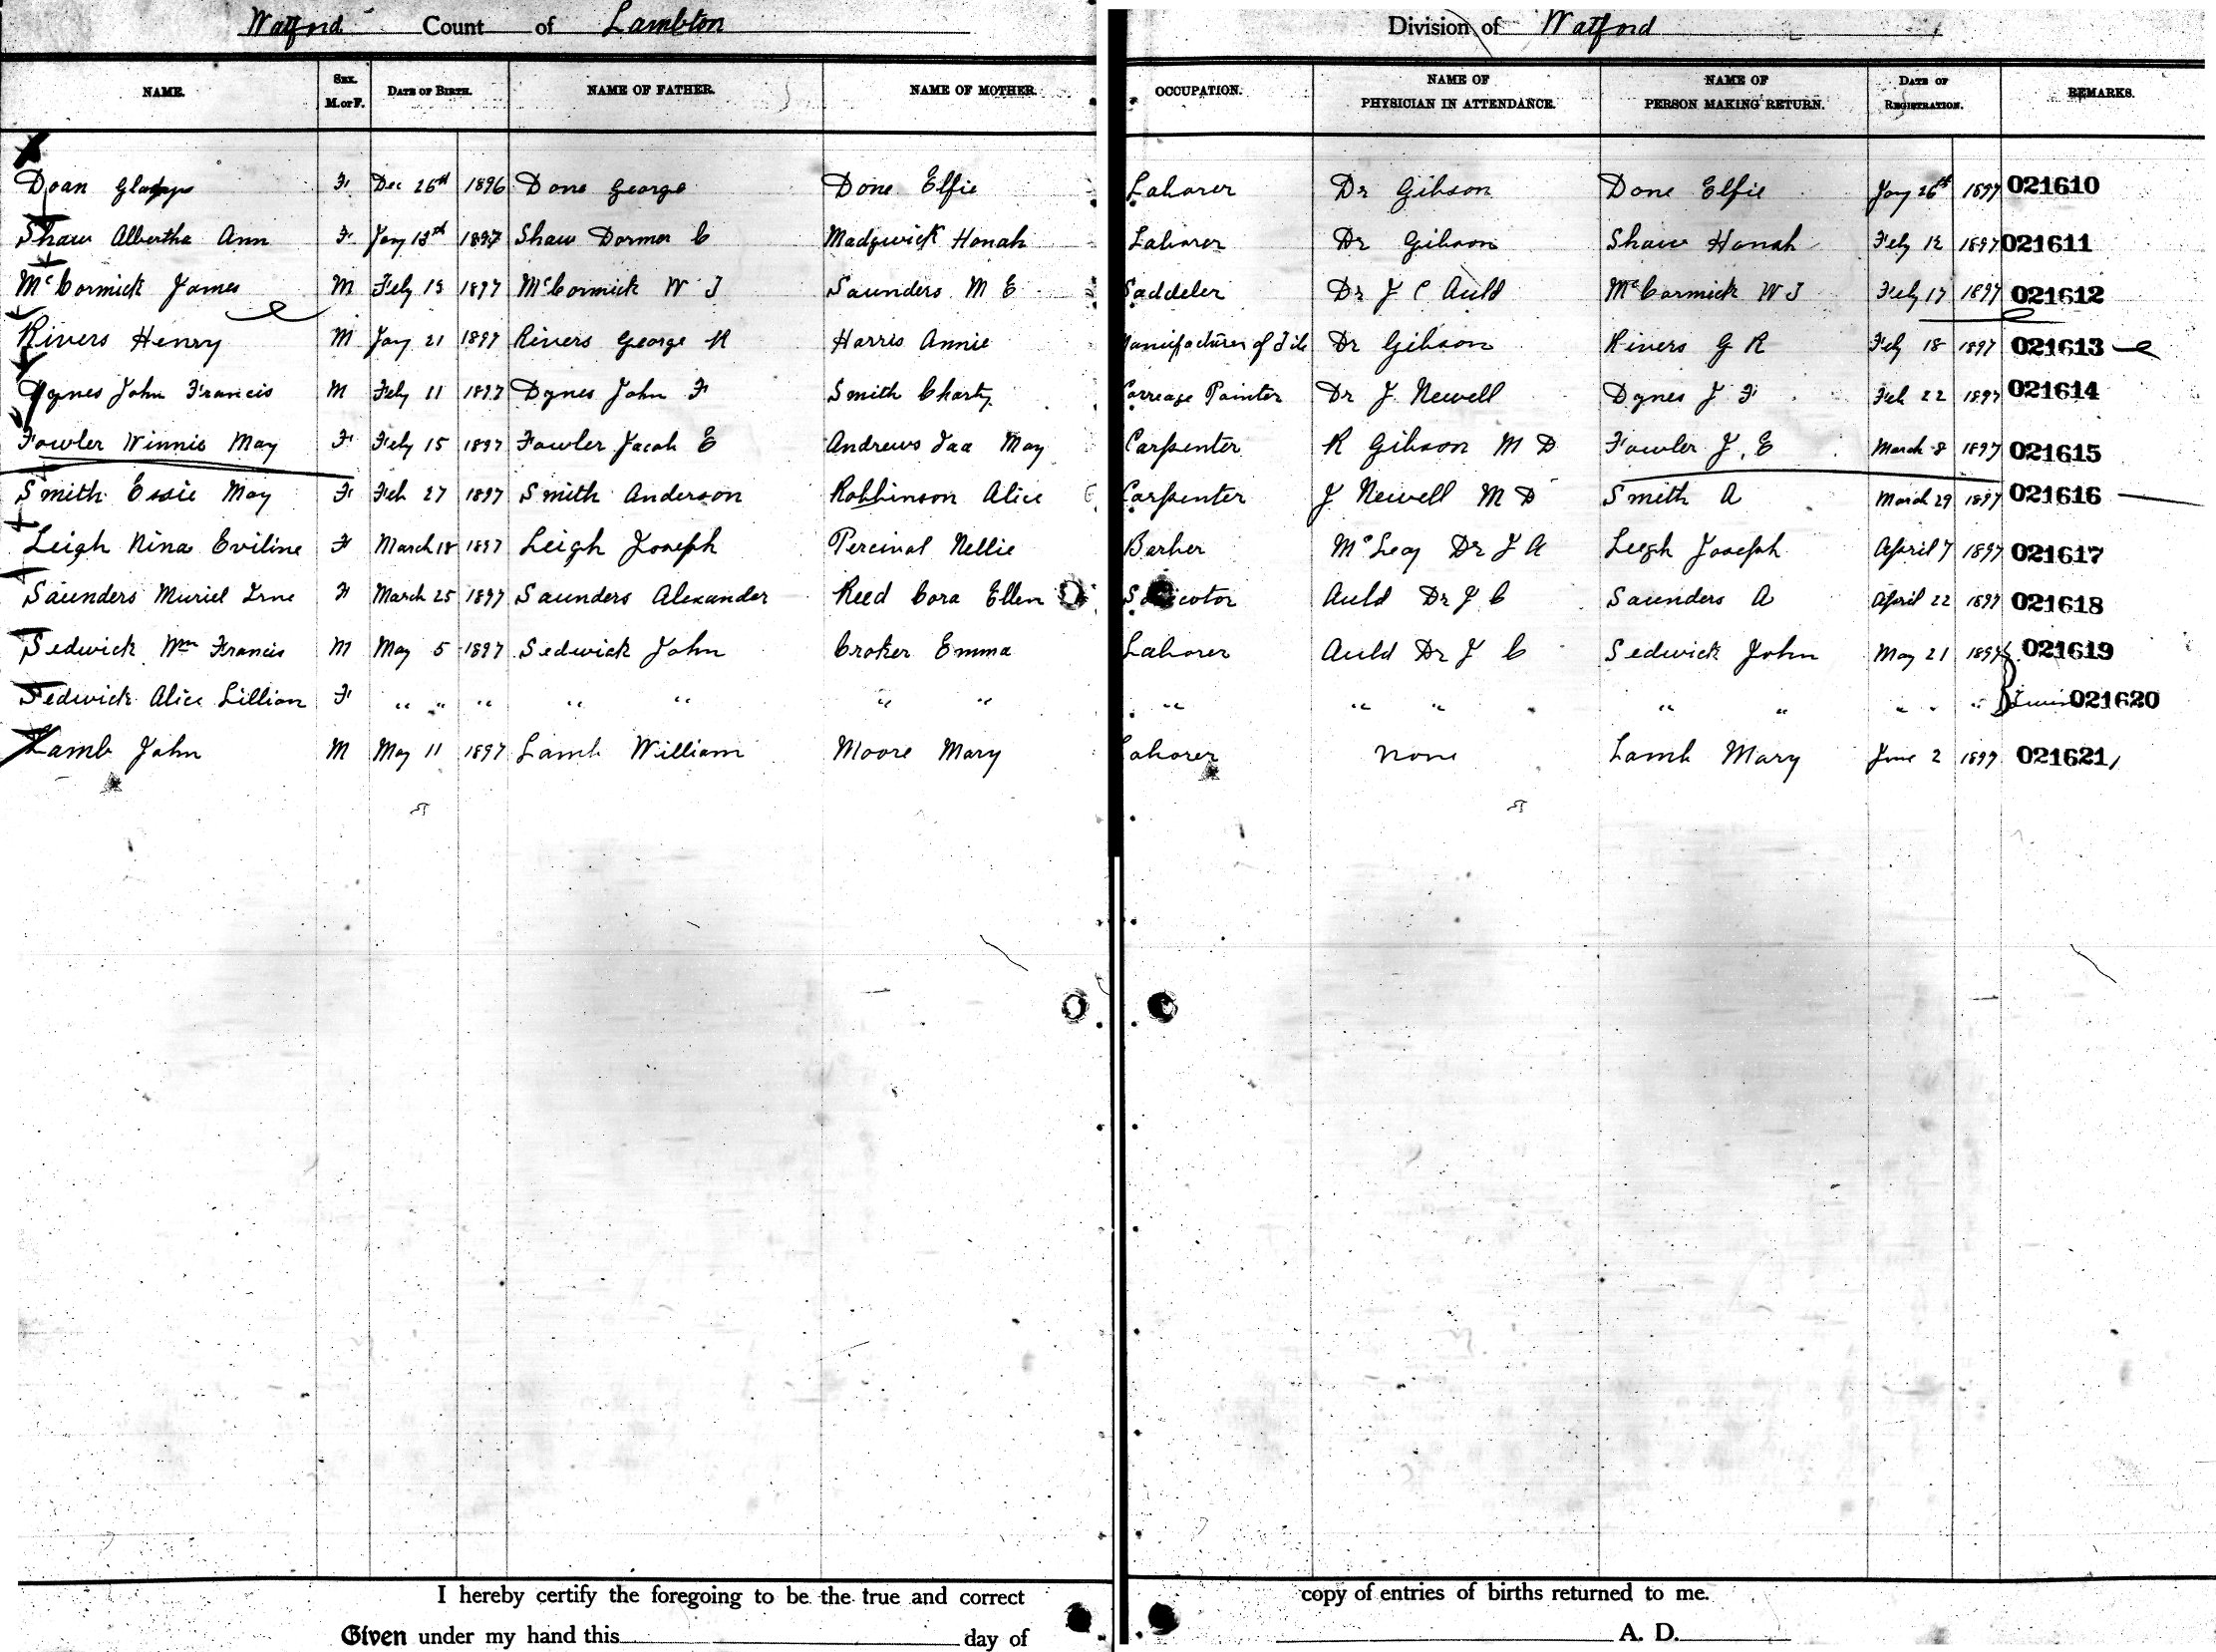 Watford Count of Lambton Division of Watford
NAME. SEX. M. or F. DATE OF BIRTH. NAME OF FATHER. NAME OF MOTHER. OCCUPATION. NAME OF PHYSICIAN IN ATTENDANCE. NAME OF PERSON MAKING RETURN. DATE OF REGISTRATION. REMARKS.
Doan Gladys F Dec 26th 1896 Done George Done Elfie Laborer Dr Gibson Done Elfie Jany 26th 1897 021610
Shaw Albertha Ann F Jany 13th 1897 Shaw Dormer C Madgwick Honah Laborer Dr Gibson Shaw Honah Feby 12 1897 021611
McCormick James M Feby 13 1897 McCormick W J Saunders M E Saddeler Dr J C Auld McCormick W J Feby 17 1897 021612
Rivers Henry M Jany 21 1897 Rivers George R Harris Annie Manufacturer of Tile Dr Gibson Rivers G R Feby 18 1897 021613
Dynes John Francis M Feby 11 1897 Dynes John F Smith Charty Carreage Painter Dr J Newell Dynes J F Feb 22 1897 021614
Fowler Winnie May F Feby 15 1897 Fowler Jacob E Andrews Ida May Carpenter R Gibson M D Fowler J. E March 8 1897 021615
Smith Essie May F Feb 27 1897 Smith Anderson Robbinson Alice Carpenter J Newell M D Smith A March 29 1897 021616
Leigh Nina Eviline F March 18 1897 Leigh Joseph Percival Nellie Barber McLeay Dr J A Leigh Joseph April 7 1897 021617
Saunders Muriel Irne F March 25 1897 Saunders Alexander Reed Cora Ellen Auld Dr J C Saunders A April 22 1897 021618
Sedwick Wm Francis M May 5 1897 Sedwick John Croker Emma Laborer Auld Dr J C Sedwick John May 21 1897 021619
Sedwick Alice Lillian F " " " " " " " " " " " " " " " " 021620
Lamb John M May 11 1897 Lamb William Moore Mary Laborer None Lamb Mary June 2 1897 021621
I hereby certify the foregoing to be the true and correct copy of entries of births returned to me.
Given under my hand this day of A. D.